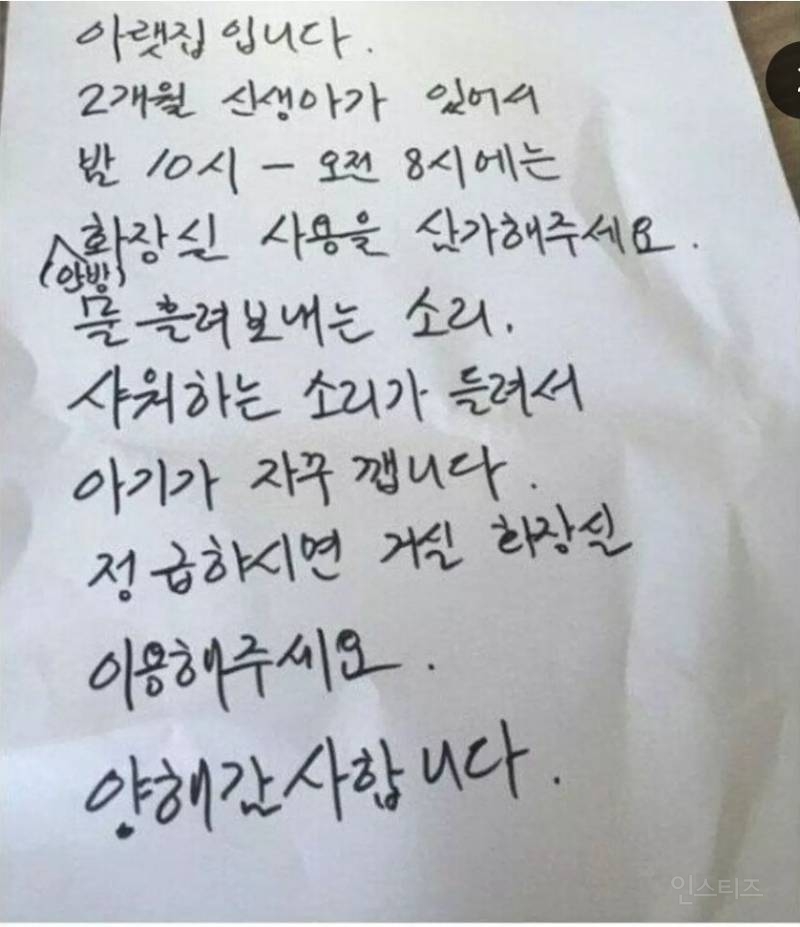 아랫집입니다.
2개월 신생아가 있어서
밤 10시 - 오전 8시에는
화장실 사용을 삼가해주세요.
(안방)
물 흘려보내는 소리.
샤워하는 소리가 들려서
아기가 자꾸 깹니다.
정 급하시면 거실 화장실
이용해주세요.
양해감사합니다.
인스티즈